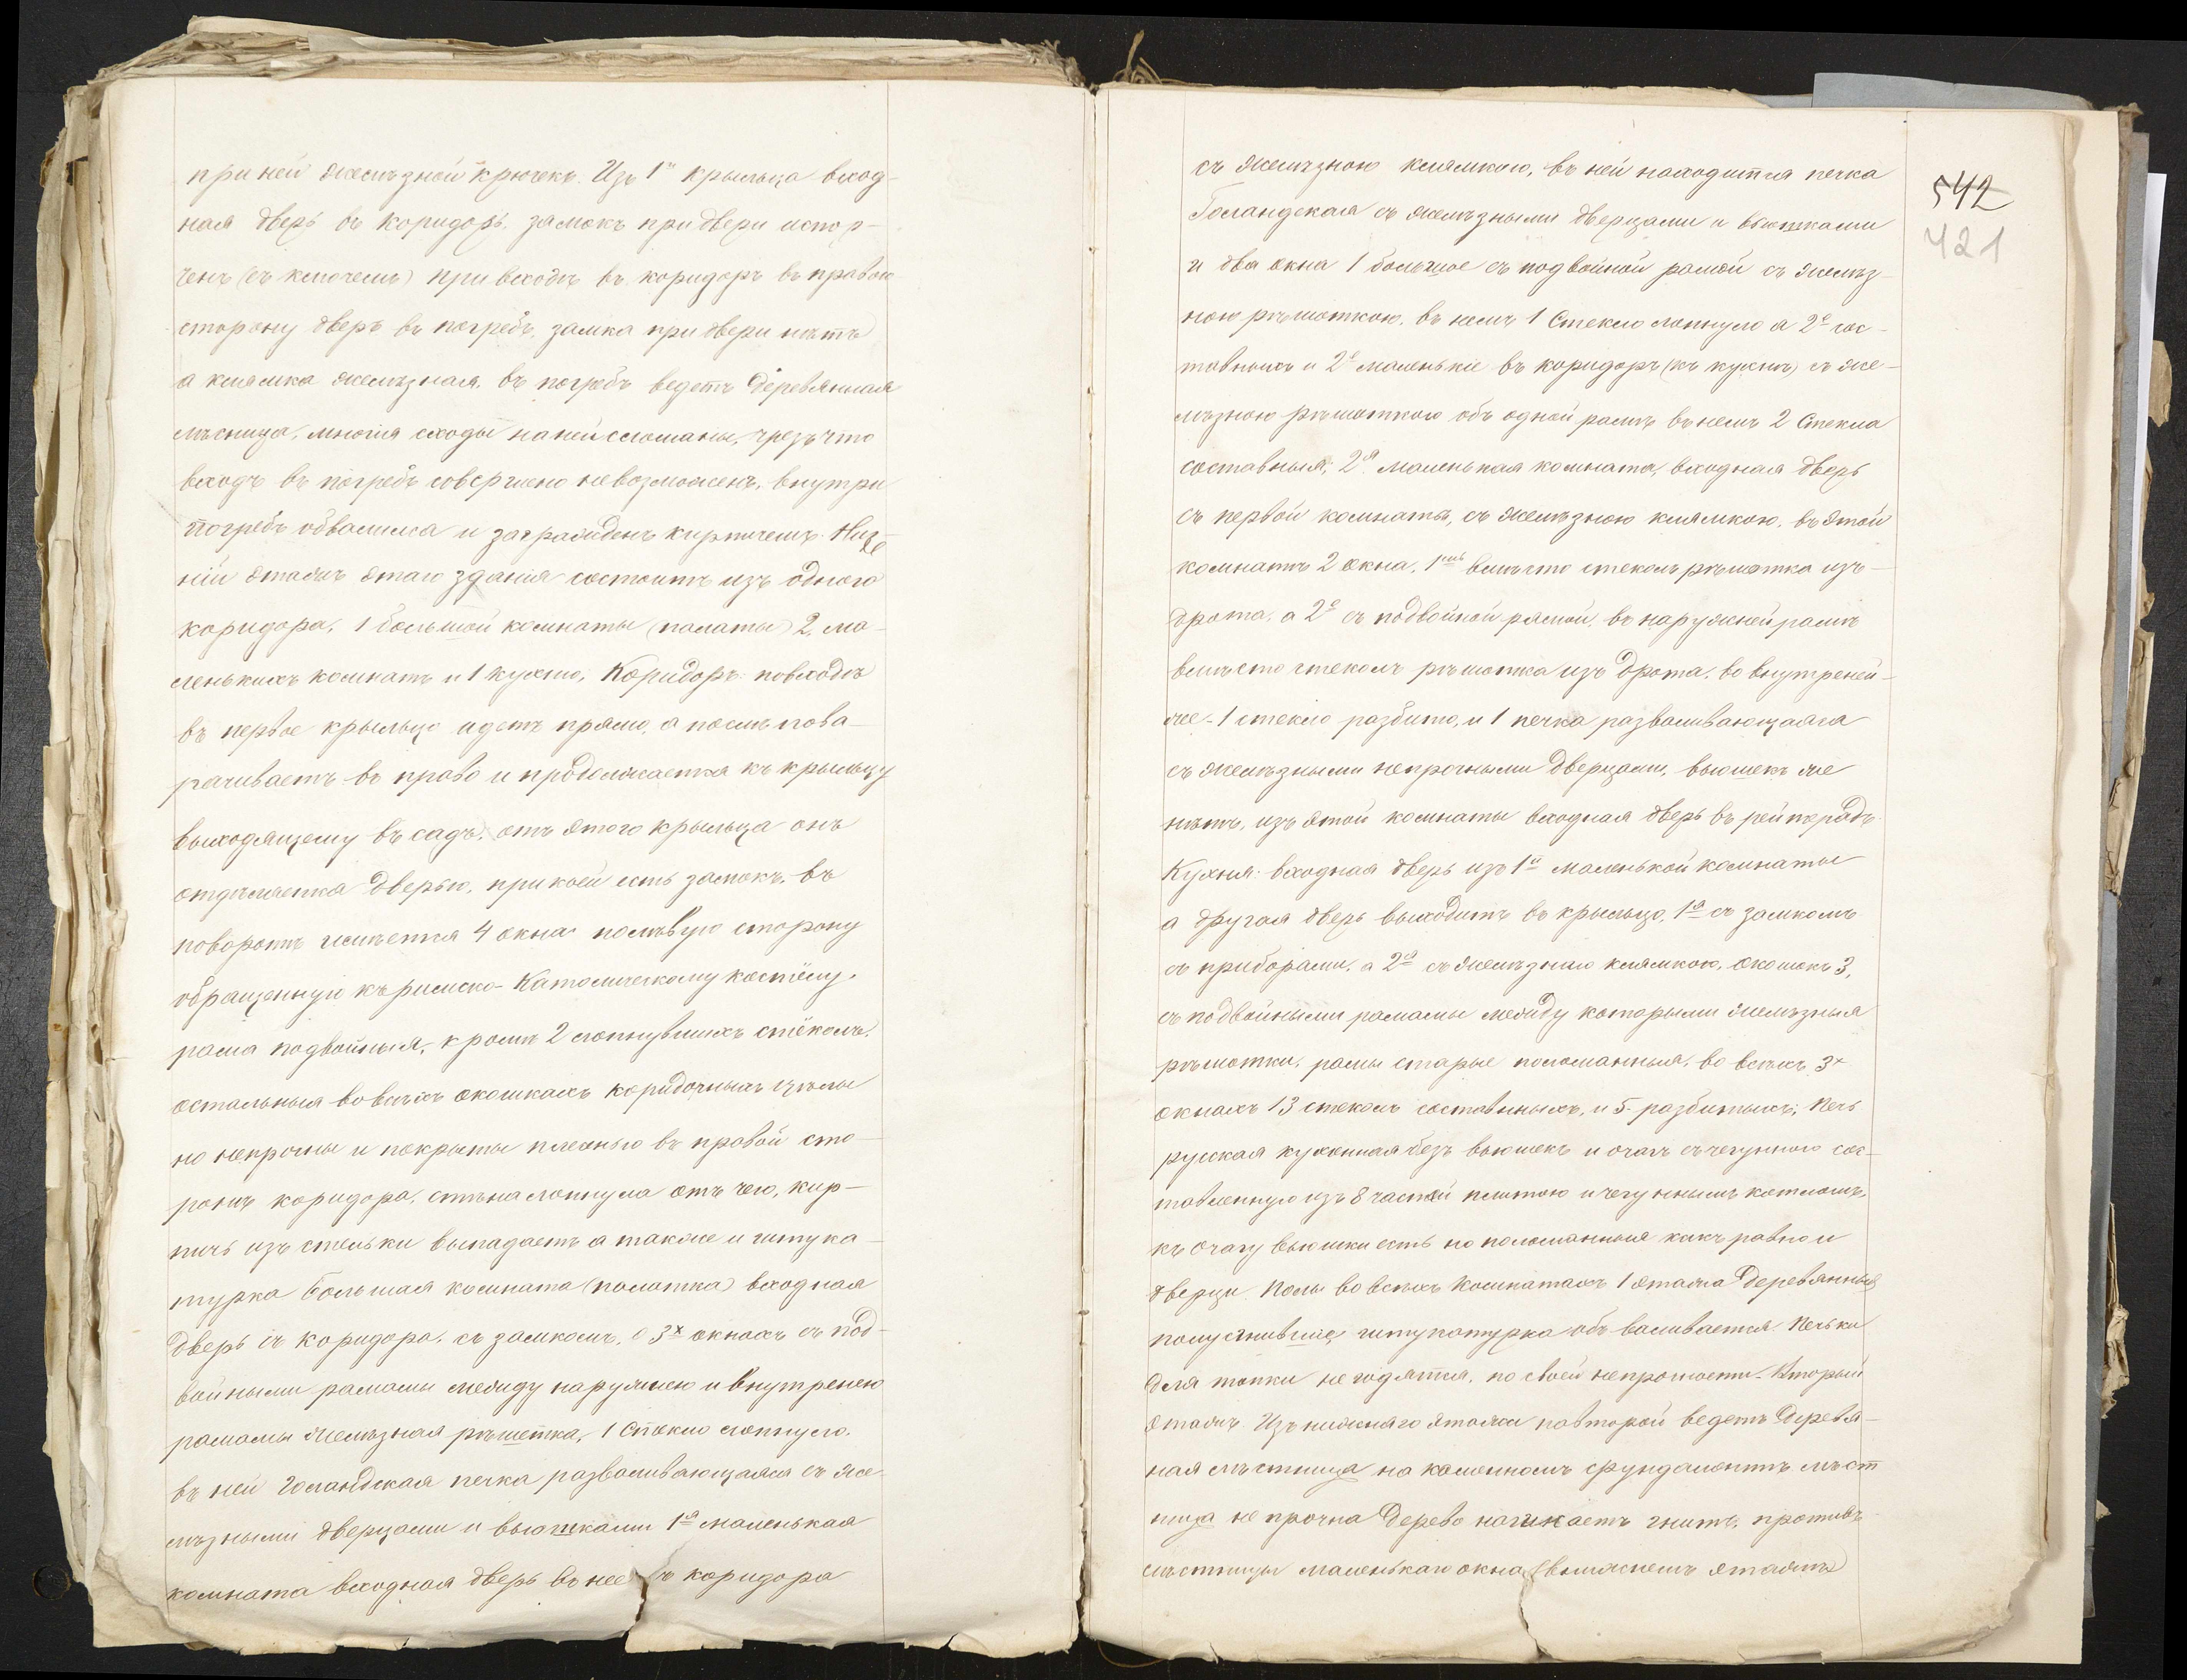 при ней желѣзной крючекъ. Изъ 1го крыльца вход-
ная дверь въ коридоръ, замокъ при двери испор-
ченъ (съ ключемъ) при входѣ въ коридоръ въ правою
сторону дверь въ погребъ, замка при двери нѣтъ
а клямка желѣзная. въ погребъ ведетъ деревянная
лѣсница, многія сходы на ней сломаны, чрезъ что
входъ въ погребъ совершено невозможенъ, внутри
погребъ обвалился и загражденъ кирпичемъ. Ниж-
ній этажъ этаго зданія состоитъ изъ одного
коридора, 1 большой комнаты (палаты) 2, ма-
ленькихъ комнатъ и 1 кухню, Коридоръ: по входѣ
въ первое крыльцо идетъ прямо, а послѣ пова-
рачиваетъ въ право и продолжается къ крыльцу
выходящему въ садъ, отъ этого крыльца онъ
отдѣляется дверью, при коей есть замокъ. въ
поворотѣ имѣется 4 окна по лѣвую сторону
обращенную къ римско-Католическому костёлу.
рама подвойныя, кромѣ 2 лопнувшихъ стёколъ.
остальныя во всѣхъ окошкахъ коридочныхъ цѣлы
но непрочны и покрыты плеснью въ правой сто-
ронѣ коридора, стѣна лопнула отъ чего, кир-
пичъ изъ стельки выпадаетъ а также и штука-
турка Большая комната (палатка) входная
дверь съ коридора. съ замкомъ, о 3х окнахъ съ под-
войными рамамы между наружнею и внутренею
рамамы желѣзная рѣшетка, 1 Стекло лопнуло.
въ ней голандская печка разваливающаяся съ же-
лѣзными дверцами и вьюшками 1я маленькая
комната входная дверь въ нее съ коридора
съ желѣзною клямкою, въ ней находится печка
Голандская съ желѣзными дверцами и вьюшками
и два окна 1 большое съ подвойной рамой съ желѣз-
ною рѣшоткою. въ немъ 1 Стекло лопнуло а 2е сос-
тавныхъ и 2е маленькіе въ коридоръ (къ кухнѣ) съ же-
лѣзною рѣшоткою объ одной рамѣ въ немъ 2 Стекла
составныя, 2я маленькая комната, входная дверь
съ первой комнаты, съ желѣзною клямкою, въ этой
комнатѣ 2 окна, вмѣсто стеколъ рѣшотка изъ
дрота, а 2е съ подвойной рамой, въ наружней рамѣ
вмѣсто стеколъ рѣшотка изъ дрота. во внутреней-
же - 1 стекло разбито, и 1 печка разваливающаяся
съ желѣзными непрочными дверцами, вьюшекъ же
нѣтъ, изъ этой комнаты входная дверь въ рейтерадъ.
Кухня: входная дверь изъ 1й маленькой комнаты
а другая дверь выходитъ въ крыльцо, 1я съ замкомъ
съ приборами, а 2я съ желѣзною клямкою, окошекъ 3,
съ подвойными рамамы между которыми желѣзныя
рѣшотки, рамы старые поломанныя, во всѣхъ 3х
окнахъ 13 стеколъ составныхъ, и 5 разбитыхъ, Печь
русская кухонная безъ вьюшекъ и очагъ съ чегунною сос-
тавленную изъ 8 частей плитою и чегуннымъ котломъ,
къ очагу вьюшки есть но поломанные какъ равно и
дверцы. Полы во всѣхъ комнатахъ 1 этажа деревянные
полусгнившіе штукатурка обваливается. Печьки
для топки не годятся, по своей непрочности. Вторый
этажъ Изъ нижняго этажа по второй ведетъ деревя-
ная лѣстница на каменномъ фундаментѣ лѣст
ница не прочна Дерево начинаетъ гнить, противъ
лѣстницы маленькаго окна (въ нижнемъ этажѣ)
542
421